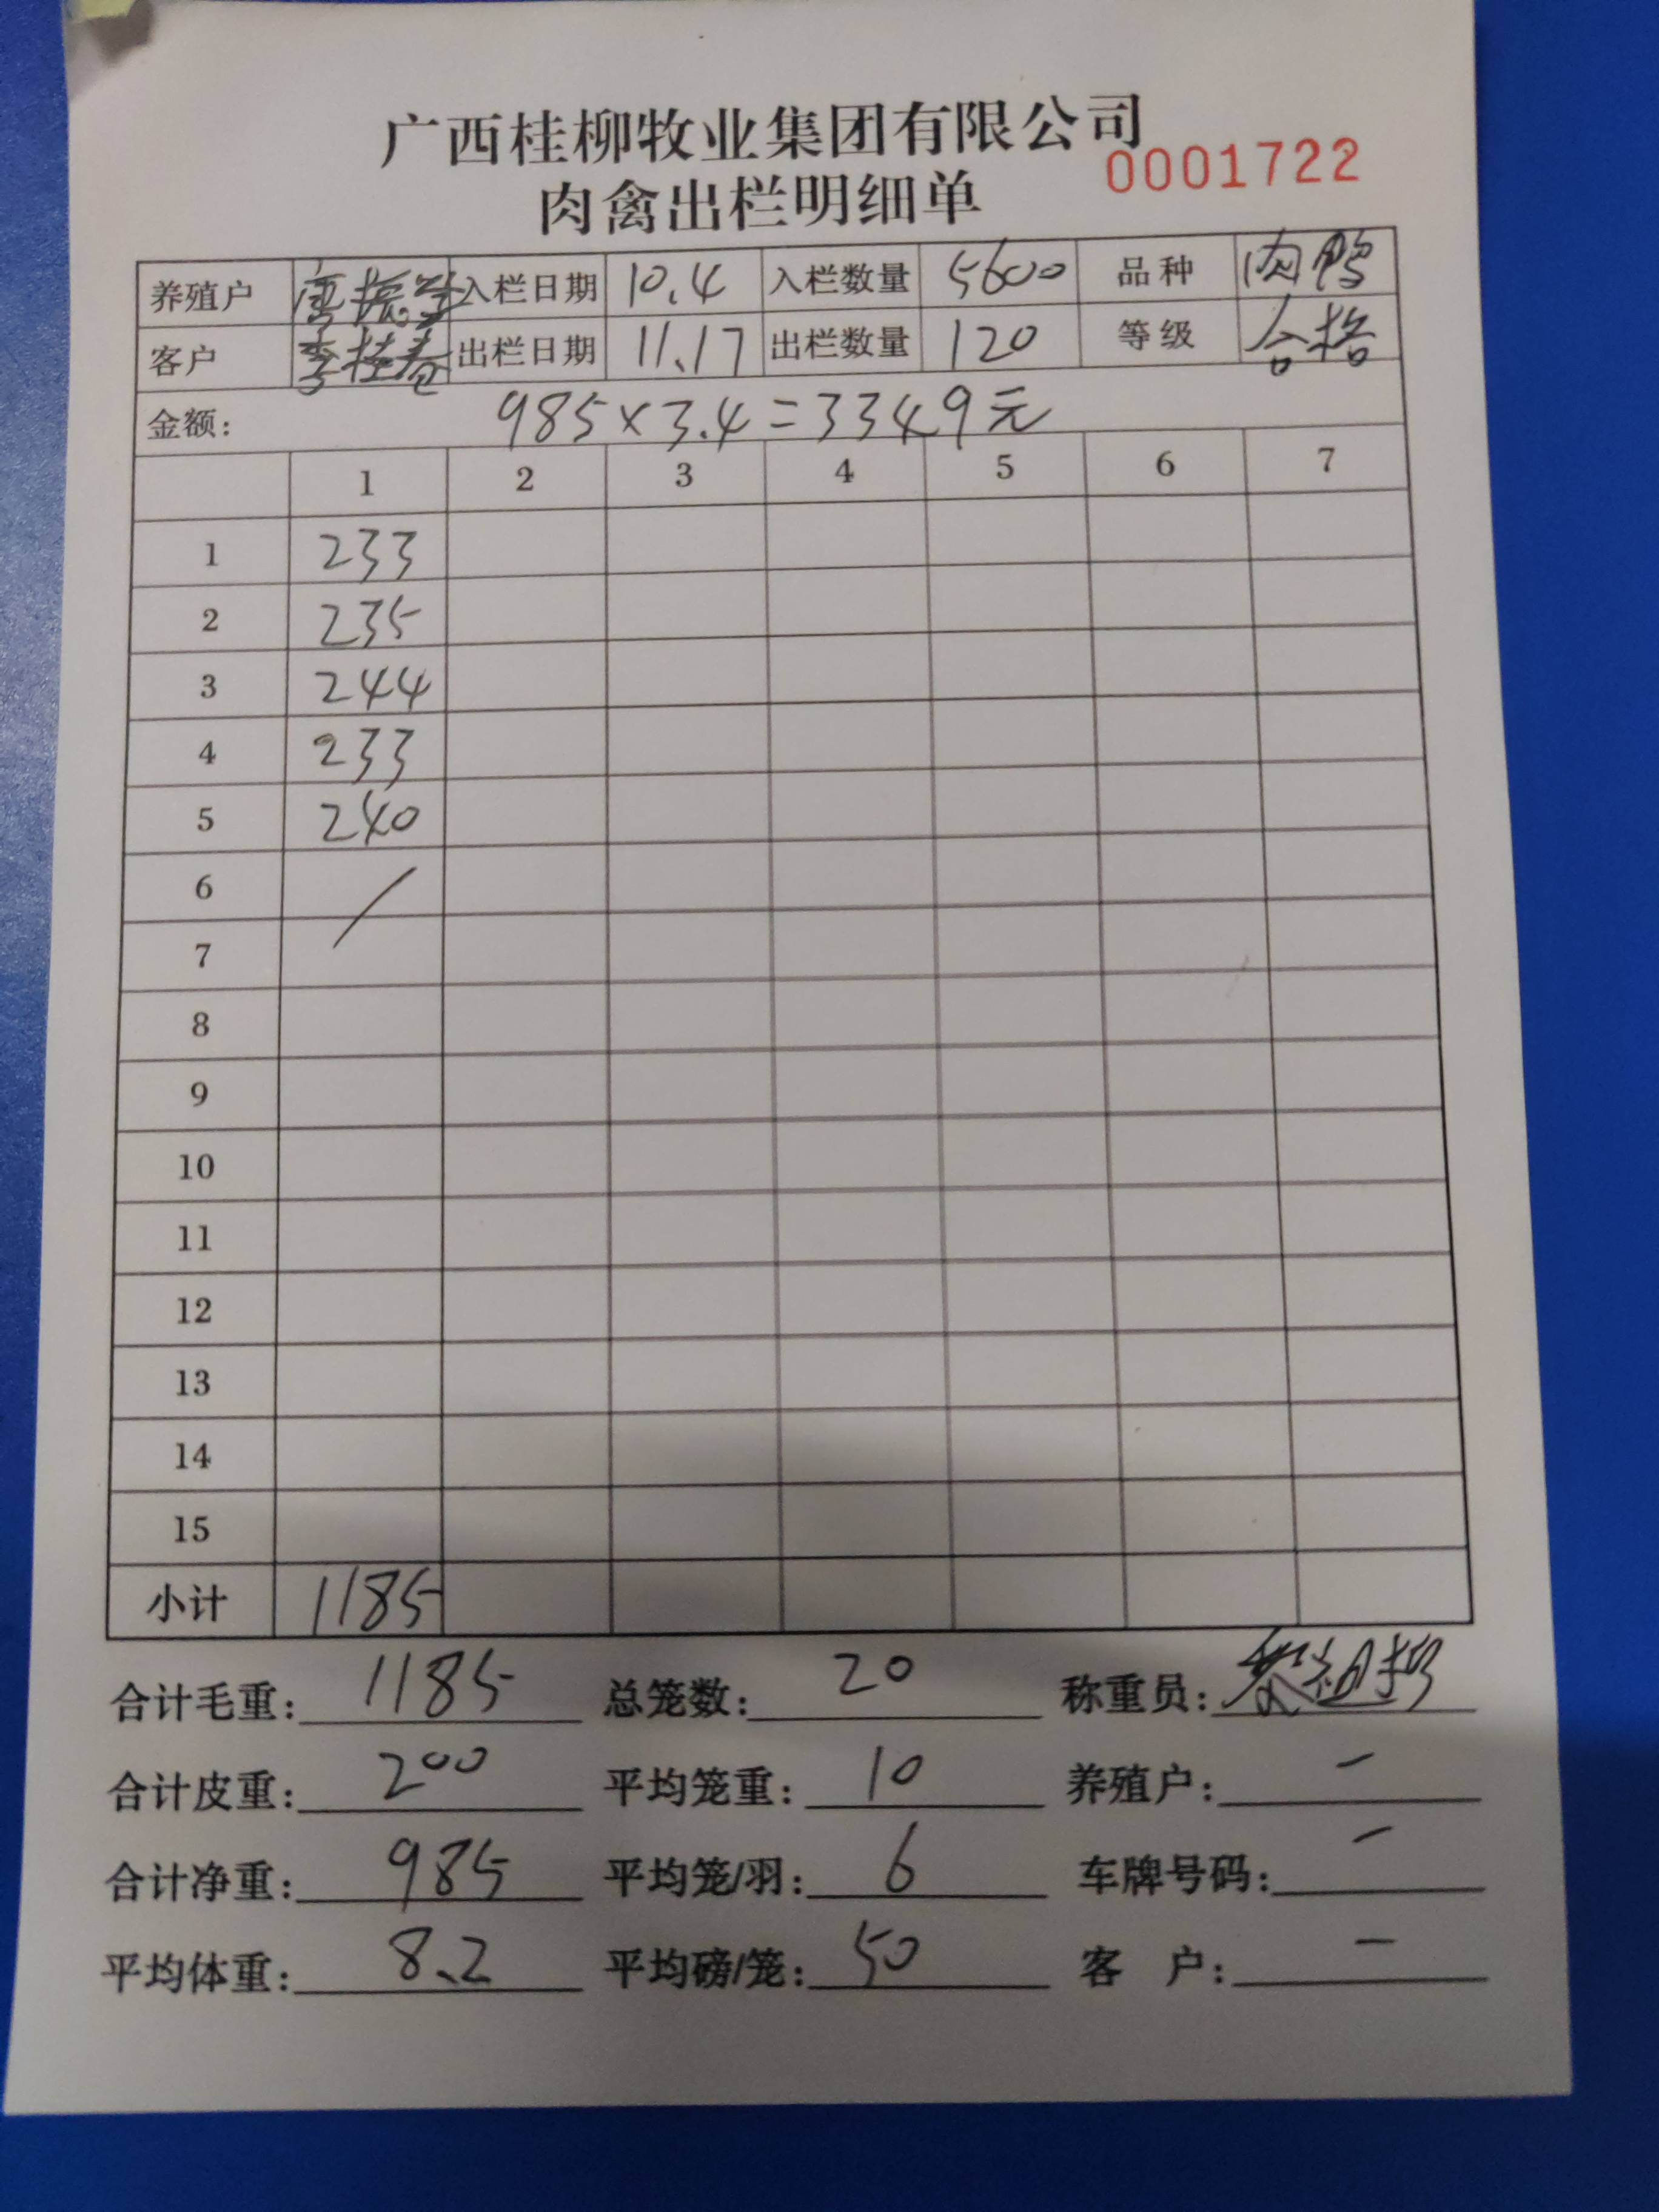 广西桂柳牧业集团有限公司
0001722
肉禽出栏明细单
养殖户 唐振 入栏日期 10.4 入栏数量 5600 品种 肉鸭
客户 李桂春 出栏日期 11.17 出栏数量 120 等级 合格
金额: 985×3.4=3349元
1 2 3 4 5 6 7
1 233
2 235
3 244
4 233
5 240
6 /
7
8
9
10
11
12
13
14
15
小计 1185
合计毛重: 1185 总笼数: 20 称重员:
合计皮重: 200 平均笼重: 10 养殖户: -
合计净重: 985 平均笼/羽: 6 车牌号码: -
平均体重: 8.2 平均磅/笼: 50 客 户: -